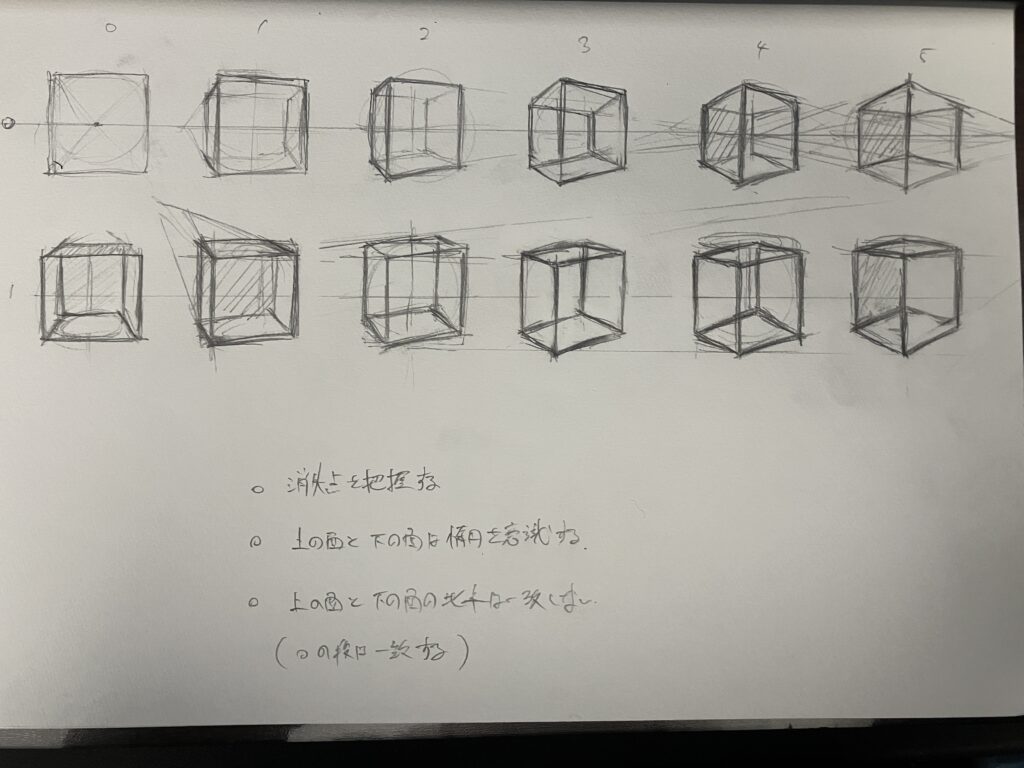 0 1 2 3 4 5
0
1
○ 消失点を把握する
○ 上の面と下の面は楕円を意識する.
○ 上の面と下の面の比率は一致しない.
(0の線は一致する)